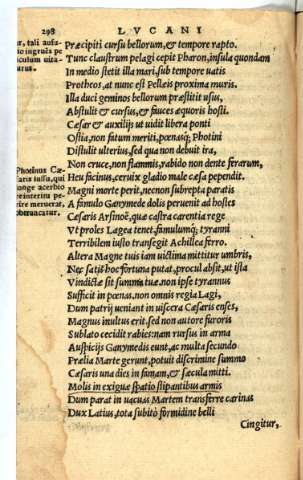 298 LVCANI
Præcipiti cursu bellorum, & tempore rapto.
Tunc claustrum pelagi cepit Pharon, insula quondam
In medio stetit illa mari, sub tempore uatis
Protheos, at nunc est Pellæis proxima muris.
Illa duci geminos bellorum præstitit usus,
Abstulit & cursus, & fauces æquoris hosti.
Cæsar & auxilijs ut uidit libera ponti
Ostia, non fatum meriti, pœnasq; Photini
Distulit ulterius, sed qua non debuit ira,
Non cruce, non flammis, rabido non dente ferarum,
Heu facinus, ceruix gladio male cæsa pependit.
Magni morte perit, necnon subrepta paratis
A famulo Ganymede dolis peruenit ad hostes
Cæsaris Arsinoë, quæ castra carentia rege
Vt proles Lagea tenet, famulumq; tyranni
Terribilem iusto transegit Achillea ferro.
Altera Magne tuis iam uictima mittitur umbris,
Nec satis hoc fortuna putat, procul absit, ut ista
Vindictæ sit summa tuæ, non ipse tyrannus
Sufficit in pœnas, non omnis regia Lagi,
Dum patrij ueniant in uiscera Cæsaris enses,
Magnus inultus erit, sed non autore furoris
Sublato cecidit rabies: nam rursus in arma
Auspicijs Ganymedis eunt, ac multa secundo
Prælia Marte gerunt, potuit discrimine summo
Cæsaris una dies in famam, & sæcula mitti.
Molis in exiguæ spatio stipantibus armis
Dum parat in uacuas Martem transferre carinas
Dux Latius, tota subitò formidine belli
Cingitur,
ar, tali aufu-
Photinus Cæ-
saris iussu, qui
longe acerbio